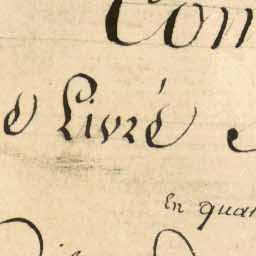 Com
e Livré
En quar